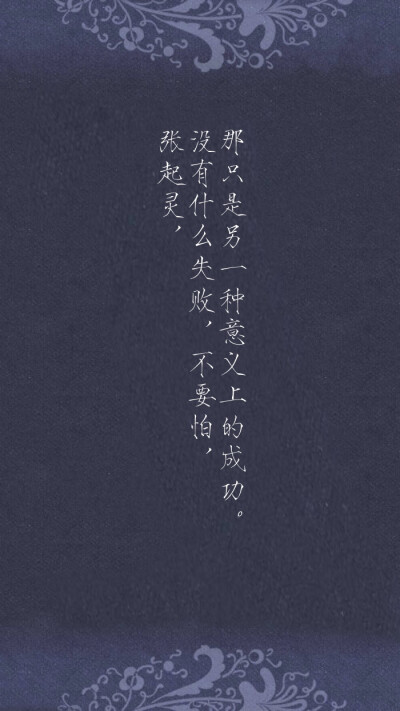 张起灵，
没有什么失败，不要怕，
那只是另一种意义上的成功。